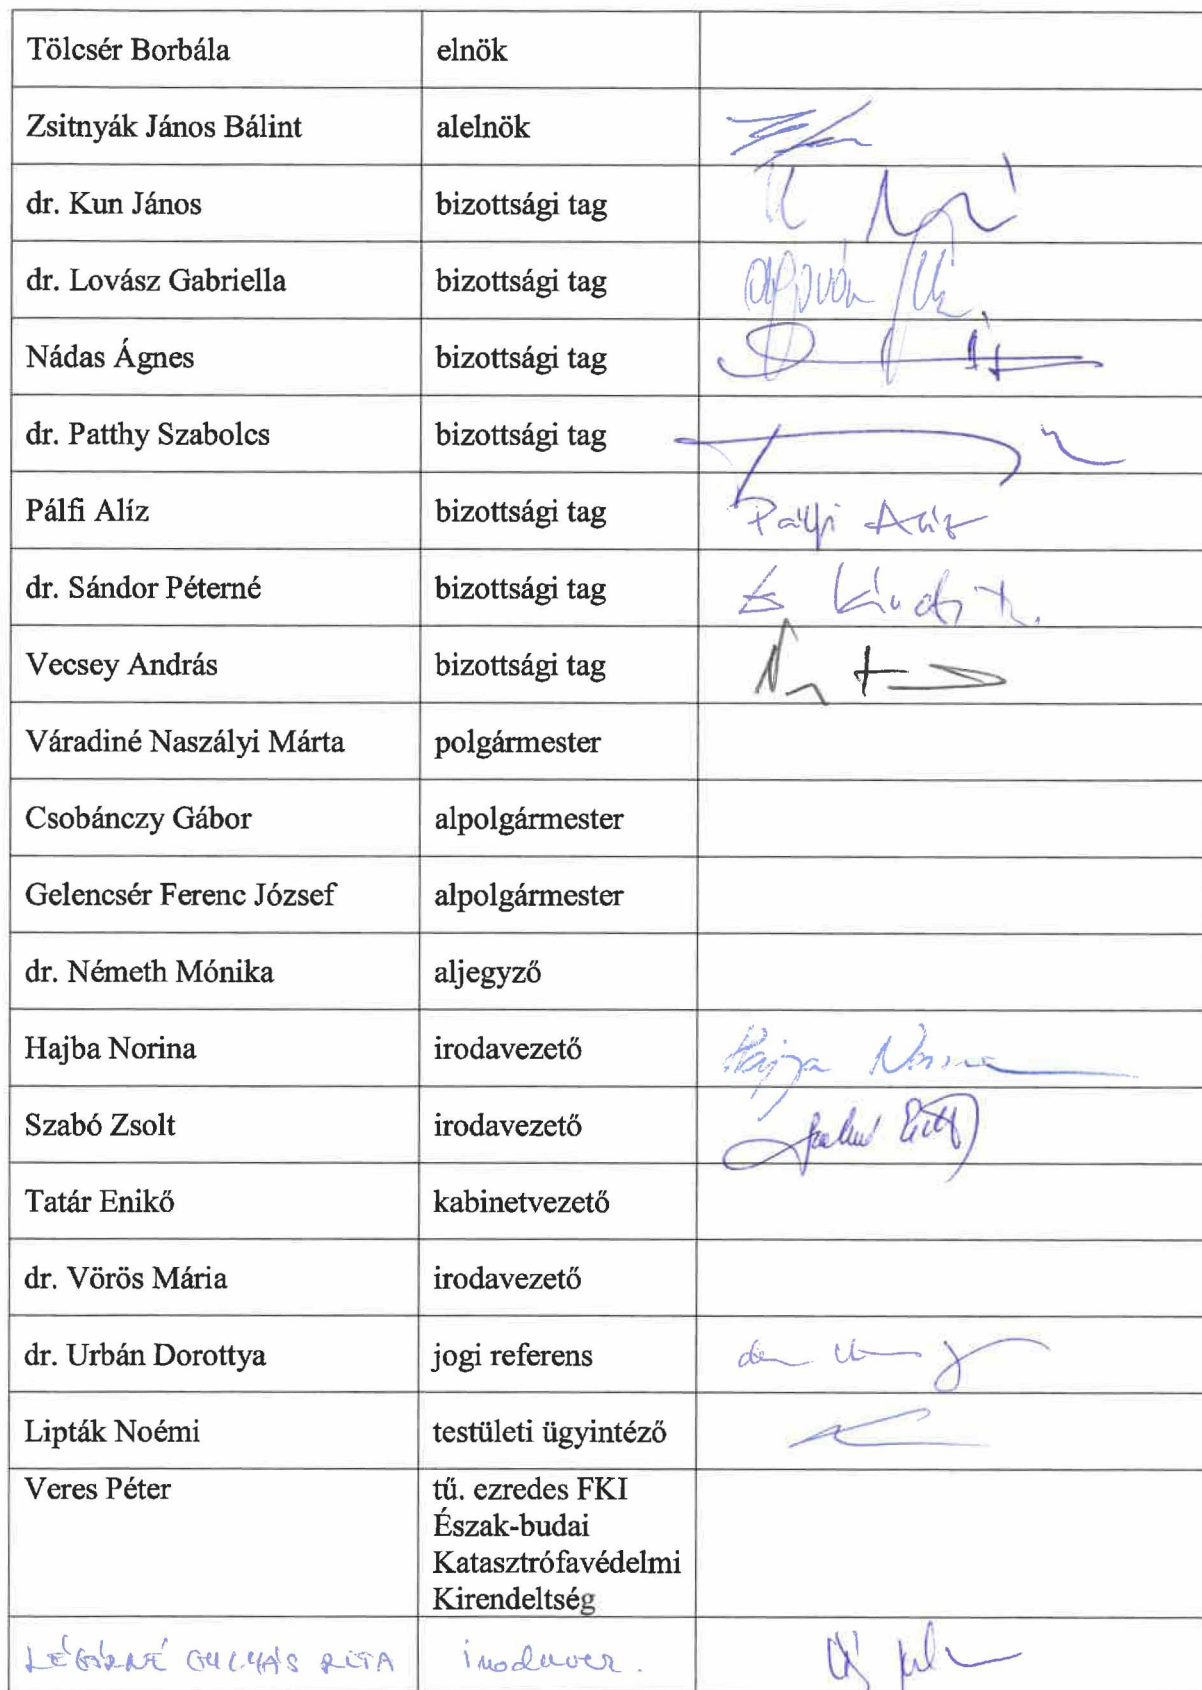 Tölcsér Borbála elnök
Zsitnyák János Bálint alelnök
dr. Kun János bizottsági tag
dr. Lovász Gabriella bizottsági tag
Nádas Ágnes bizottsági tag
dr. Patthy Szabolcs bizottsági tag
Pálfi Alíz bizottsági tag Pálfi Alíz
dr. Sándor Péterné bizottsági tag
Vecsey András bizottsági tag
Váradiné Naszályi Márta polgármester
Csobánczy Gábor alpolgármester
Gelencsér Ferenc József alpolgármester
dr. Németh Mónika aljegyző
Hajba Norina irodavezető Hajba Norina
Szabó Zsolt irodavezető Szabó Zsolt
Tatár Enikő kabinetvezető
dr. Vörös Mária irodavezető
dr. Urbán Dorottya jogi referens
Lipták Noémi testületi ügyintéző
Veres Péter tű. ezredes FKI
Észak-budai
Katasztrófavédelmi
Kirendeltség
GULYÁS RITA irodavez.